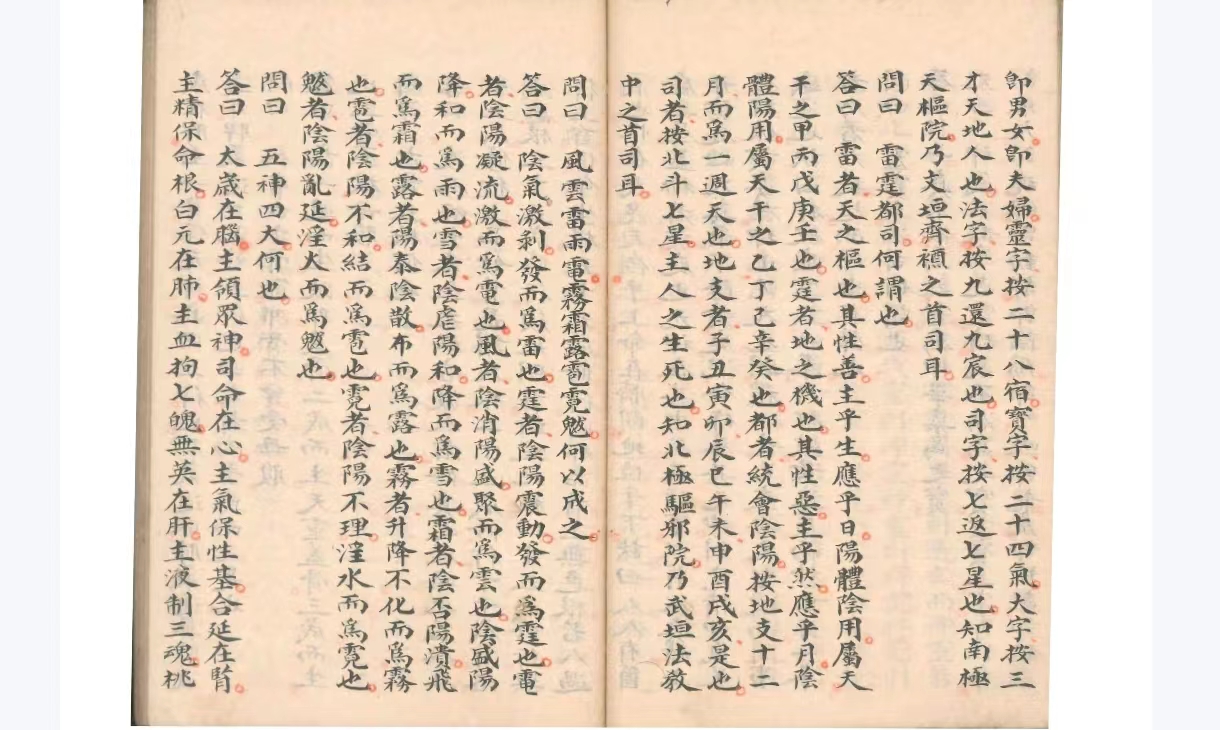 即男女即夫婦靈字按二十八宿寶字按二十四氣大字按三
才天地人也法字按九還九宸也司字按七返七星也知南極
天樞院乃文垣齊禎之首司耳
問曰　雷霆都司何謂也
答曰雷者天之樞也其性善主乎生應乎日陽體陰用屬天
干之甲丙戊庚壬也霆者地之機也其性惡主乎然應乎月陰
體陽用屬天干之乙丁己辛癸也都者統會陰陽按地支十二
月而爲一週天也地支者子丑寅卯辰巳午未申酉戌亥是也
司者按北斗七星主人之生死也知北極驅邪院乃武垣法教
中之首司耳
問曰　風雲雷雨電霧霜露雹霓魃何以成之
答曰　陰氣激剥發而爲雷也霆者陰陽震動發而爲霆也電
者陰陽凝流激而爲電也風者陰消陽盛聚而爲雲也陰盛陽
降和而爲雨也雪者陰虐陽和降而爲雪也霜者陰否陽潰飛
而爲霜也露者陽泰陰散布而爲露也霧者升降不化而爲霧
也雹者陰陽不和結而爲雹也霓者陰陽不理淫水而爲霓也
魃者陰陽亂延淫火而爲魃也
問曰　五神四大何也
答曰　太歲在腦主領眾神司命在心主氣保性基合延在腎
主精保命根白元在肺主血拘七魄無英在肝主液制三魂桃